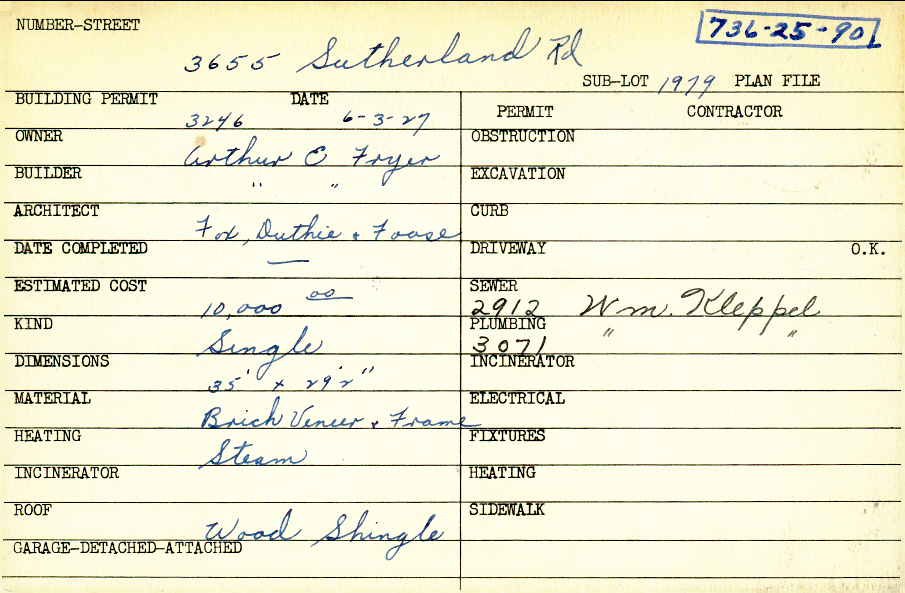 NUMBER-STREET 736-25-90
3655 Sutherland Rd
SUB-LOT 1979 PLAN FILE
BUILDING PERMIT DATE
3246 6-3-27
PERMIT CONTRACTOR
OWNER Arthur E Fryer
OBSTRUCTION
BUILDER " "
EXCAVATION
ARCHITECT Fox, Duthie & Foose
CURB
DATE COMPLETED —
DRIVEWAY O.K.
ESTIMATED COST 10,000 00
SEWER 2912 Wm. Kleppel
KIND Single
PLUMBING 3071 " "
DIMENSIONS 35' x 29'2"
INCINERATOR
MATERIAL Brick Veneer & Frame
ELECTRICAL
HEATING Steam
FIXTURES
INCINERATOR
HEATING
ROOF Wood Shingle
SIDEWALK
GARAGE-DETACHED-ATTACHED